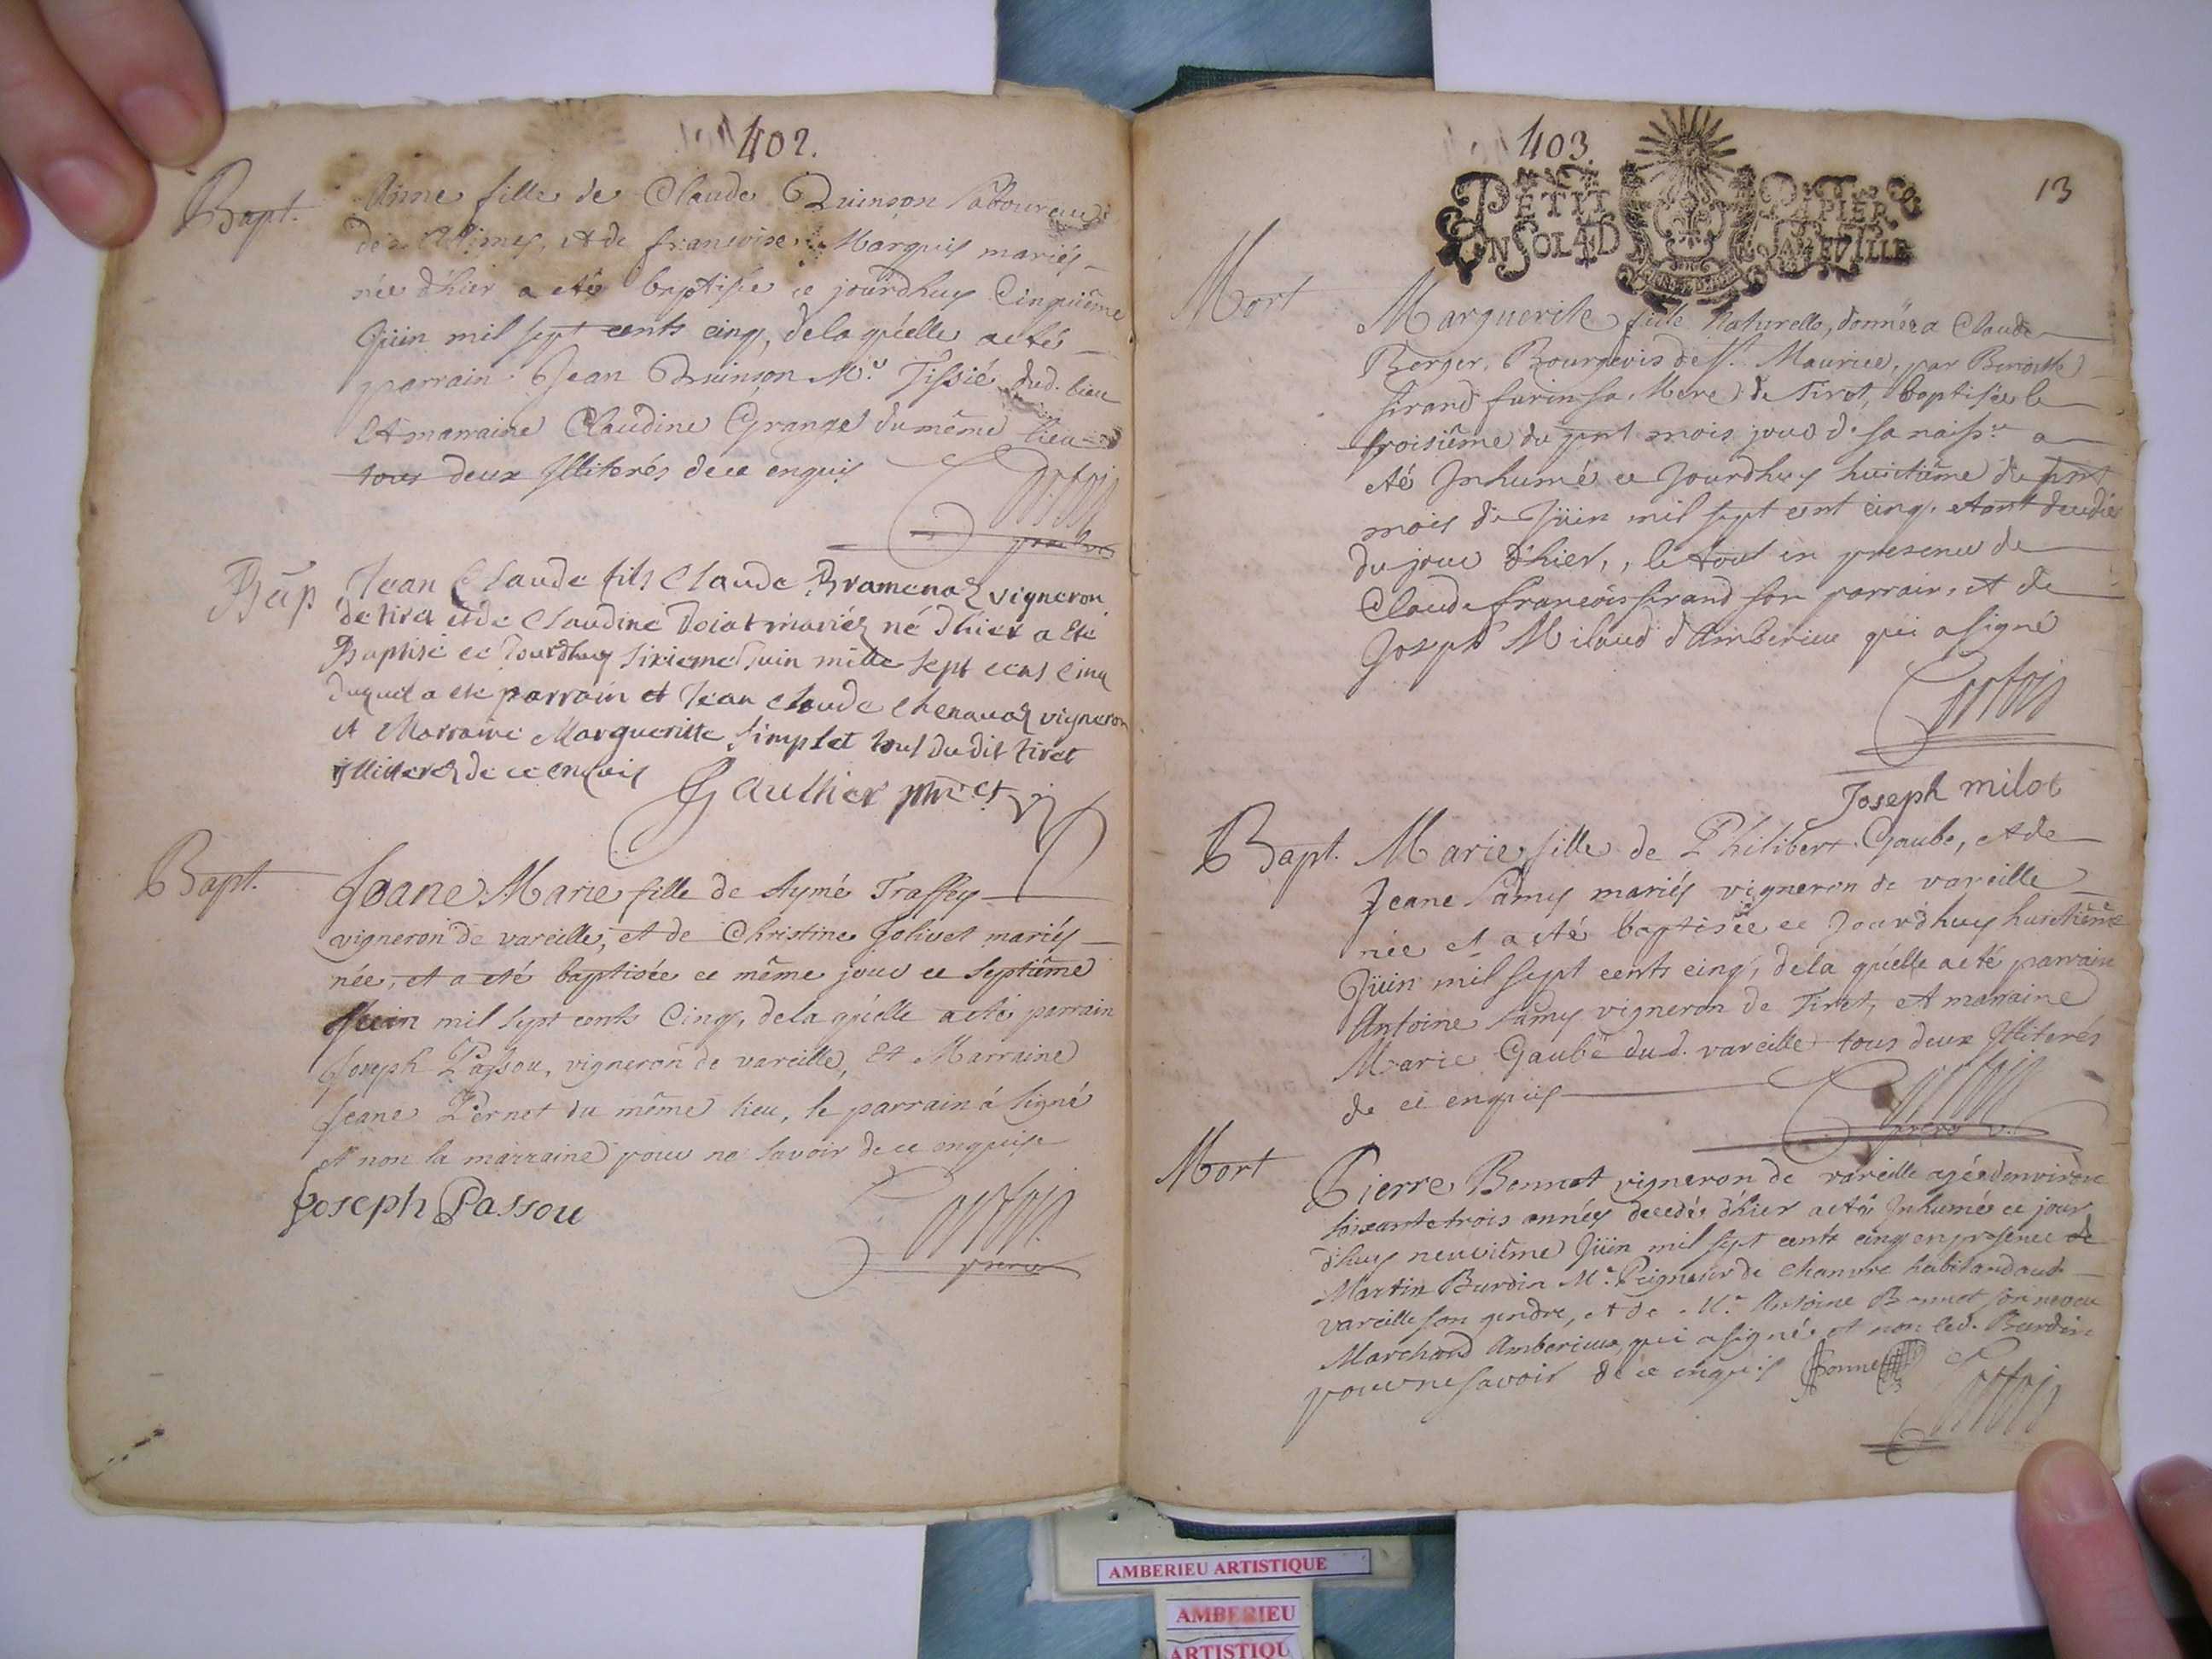 402.
Bapt.
Anne fille de Claude Quinson laboureur
des Allimes, et de francoise Marquis mariés
née d'hier a eté baptisée ce jourdhuy Cinquiême
Jüin mil sept cents cinq, de la quelle a eté
parrain Jean Quinson Me. Tissié dud. lieu
et marraine Claudine Grange du même lieu
tous deux Illiterés de ce enquis
Bap
Jean Claude fils Claude Bramenaz vigneron
de tiret et de Claudine Doiat mariéz né dhier a ete
Baptisé ce Jourdhuy sixieme Juin mille sept cens cinq
duquel a ete parrain et Jean Claude Chenavaz vigneron
et Marraine Margueritte Simplet tous du dit tiret
illiterez de ce enquis
Gaulthier
Bapt.
Jeane Marie fille de Aymé Traffey
vigneron de vareille, et de Christine Jolivet mariés
née, et a eté baptisée ce même jour ce septiême
Juin mil sept cents Cinq, de la quélle a eté parrain
Joseph Passou, vigneron de vareille, et Marraine
Jeane Pernet du même lieu, le parrain á signé
et non la marraine pour ne savoir de ce enquise
Joseph Passou
403
13
PETIT PAPIER
UN SOL 4 D LA FEVILLE
Mort
Marguerite fille Naturelle, donnée a Claude
Berger, Bourgeois de St. Maurice, par Benoitte
sirand furin sa Mere de Tiret, baptisée le
troisiême du pnt mois jour de sa naissce a
eté Inhumé ce Jourdhuy huitiême du pnt
mois de Jüin mil sept cent cinq, etant decedée
du jour d'hier,, le tout en presence de
Claude francois sirand son parrain, et de
Joseph Milaud d'Amberieu qui a signé
Joseph milot
Bapt.
Marie fille de Philibert Gaube, et de
Jeane Lamy mariés vigneron de vareille
née et a eté baptisée ce Jourdhuy huictiême
Jüin mil sept cents cinq, de la quélle a eté parrain
Antoine Lamy vigneron de Tiret, et maraine
Marie Gaube dud. vareille tous deux Illiterés
de ce enquis
Mort
Pierre Bonnet vigneron de vareille agée denviron
soixante trois années decedés d'hier a eté Inhumé ce jour
d'huy neuviême Jüin mil sept cents cinq en presence de
Martin Burdin Me. Peigneur de chanvre habitand aud.
vareille son gendre, et de Mr. Antoine Bonnet son neveu
Marchand Amberieux, qui a signé et non led. Burdin
pour ne savoir de ce enquis
Bonnet
AMBERIEU ARTISTIQUE
AMBERIEU
ARTISTIQU